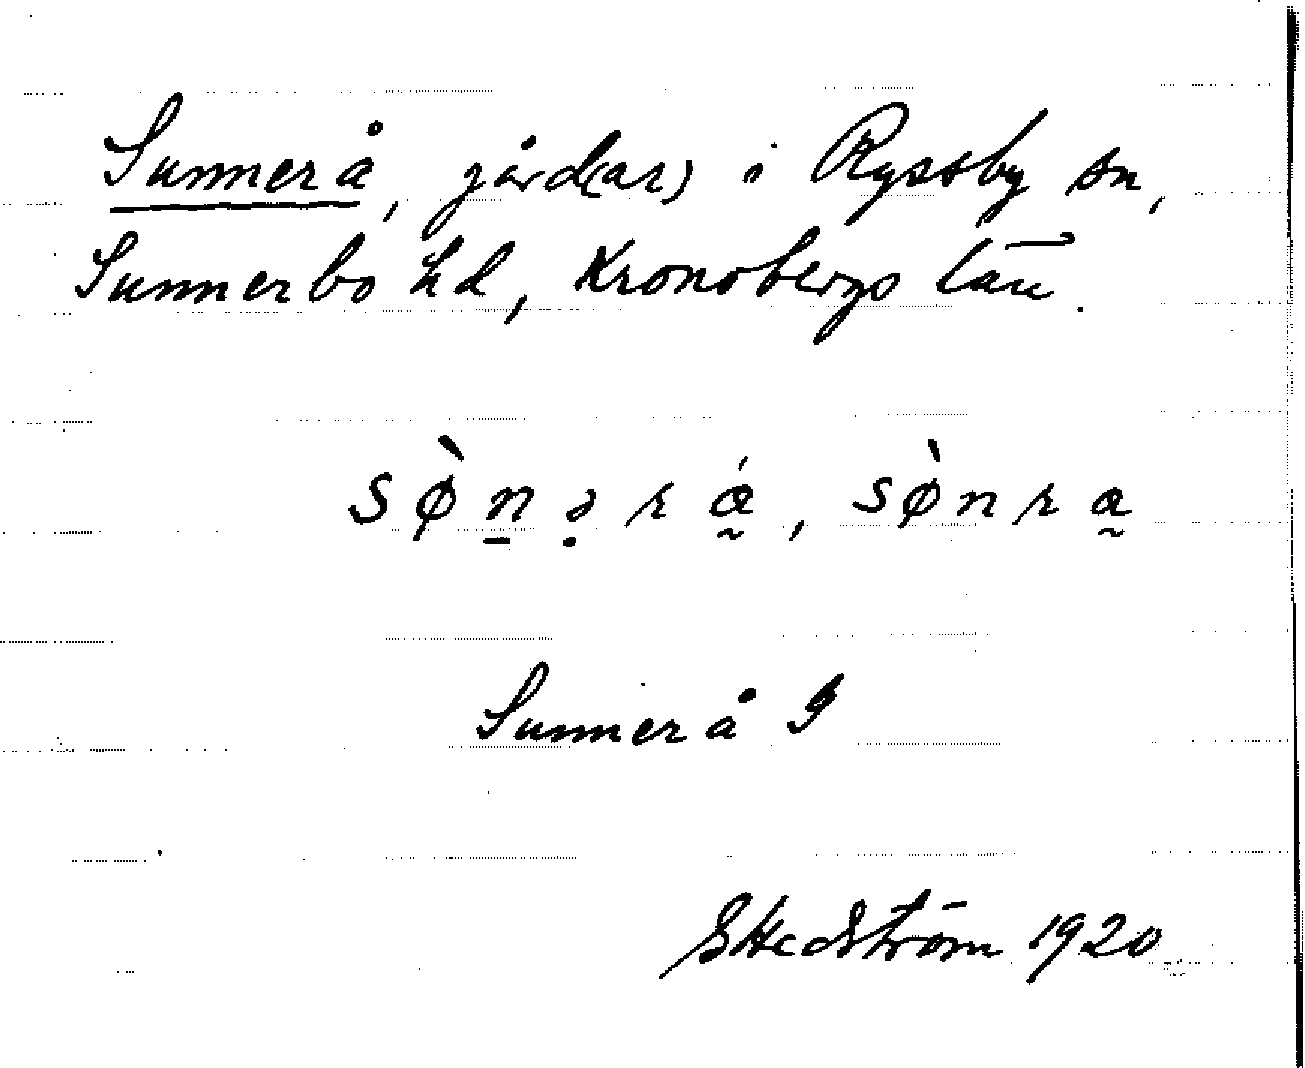 Sunnerå, gård(ar) i Ryssby sn,
Sunnerbo hd, Kronobergs län.
sø̀n̠ə̣rǽ̰, sø̀nræ̰
Sunnerå G
G Hedström 1920